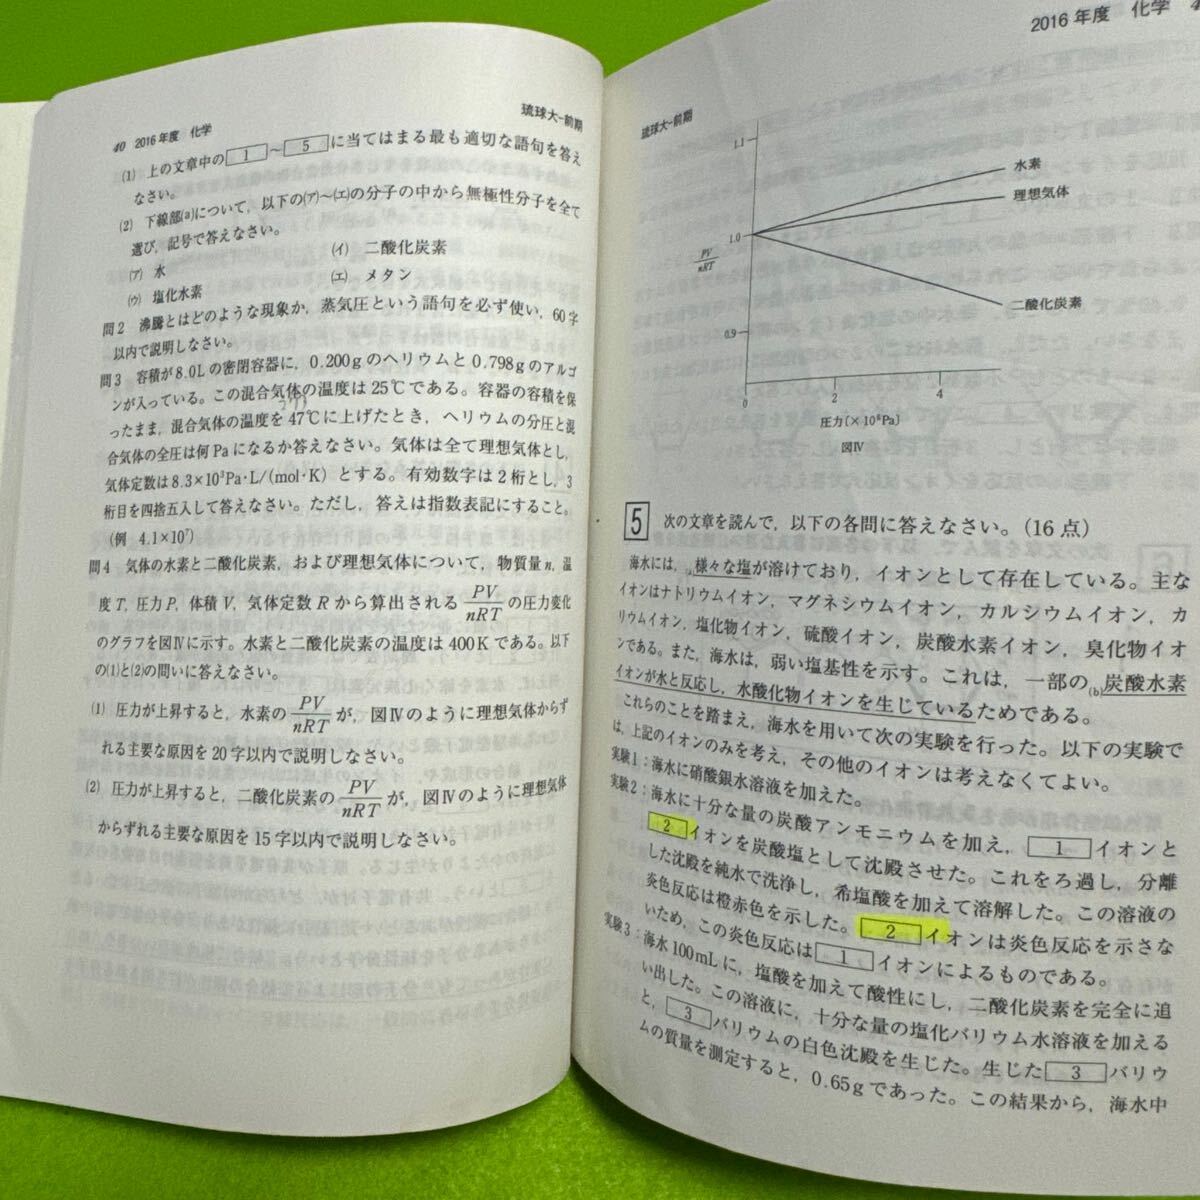 40 2016年度 化学
琉球大-前期
(1) 上の文章中の 1 ～ 5 に当てはまる最も適切な語句を答え
なさい。
(2) 下線部(a)について，以下の(ア)～(エ)の分子の中から無極性分子を全て
選び，記号で答えなさい。
(ア) 水
(イ) 二酸化炭素
(ウ) 塩化水素
(エ) メタン
問2 沸騰とはどのような現象か，蒸気圧という語句を必ず使い，60字
以内で説明しなさい。
問3 容積が8.0Lの密閉容器に，0.200gのヘリウムと0.798gのアルゴ
ンが入っている。この混合気体の温度は25℃である。容器の容積を保
ったまま，混合気体の温度を47℃に上げたとき，ヘリウムの分圧と混
合気体の全圧は何Paになるか答えなさい。気体は全て理想気体とし，
気体定数は8.3×10³Pa·L/(mol·K)とする。有効数字は2桁とし，3
桁目を四捨五入して答えなさい。ただし，答えは指数表記にすること。
(例 4.1×10⁷)
問4 気体の水素と二酸化炭素，および理想気体について，物質量n，温
度T，圧力P，体積V，気体定数Rから算出される PV/nRT の圧力変化
のグラフを図Ⅳに示す。水素と二酸化炭素の温度は400Kである。以下
の(1)と(2)の問いに答えなさい。
(1) 圧力が上昇すると，水素の PV/nRT が，図Ⅳのように理想気体からず
れる主要な原因を20字以内で説明しなさい。
(2) 圧力が上昇すると，二酸化炭素の PV/nRT が，図Ⅳのように理想気体
からずれる主要な原因を15字以内で説明しなさい。
2016年度 化学
琉球大-前期
1.1
水素
理想気体
1.0
PV/nRT
二酸化炭素
0.9
0
2
4
圧力(×10⁶Pa)
図Ⅳ
5 次の文章を読んで，以下の各問に答えなさい。(16点)
海水には，(a)様々な塩が溶けており，イオンとして存在している。主な
イオンはナトリウムイオン，マグネシウムイオン，カルシウムイオン，カ
リウムイオン，塩化物イオン，硫酸イオン，炭酸水素イオン，臭化物イオ
ンである。また，海水は，弱い塩基性を示す。これは，一部の(b)炭酸水素
イオンが水と反応し，水酸化物イオンを生じているためである。
これらのことを踏まえ，海水を用いて次の実験を行った。以下の実験で
は，上記のイオンのみを考え，その他のイオンは考えなくてよい。
実験1：海水に硝酸銀水溶液を加えた。
実験2：海水に十分な量の炭酸アンモニウムを加え， 1 イオンと
2 イオンを炭酸塩として沈殿させた。これをろ過し，分離
した沈殿を純水で洗浄し，希塩酸を加えて溶解した。この溶液の
炎色反応は橙赤色を示した。 2 イオンは炎色反応を示さな
いため，この炎色反応は 1 イオンによるものである。
実験3：海水100mLに，塩酸を加えて酸性にし，二酸化炭素を完全に追
い出した。この溶液に，十分な量の塩化バリウム水溶液を加える
と， 3 バリウムの白色沈殿を生じた。生じた 3 バリウ
ムの質量を測定すると，0.65gであった。この結果から，海水中